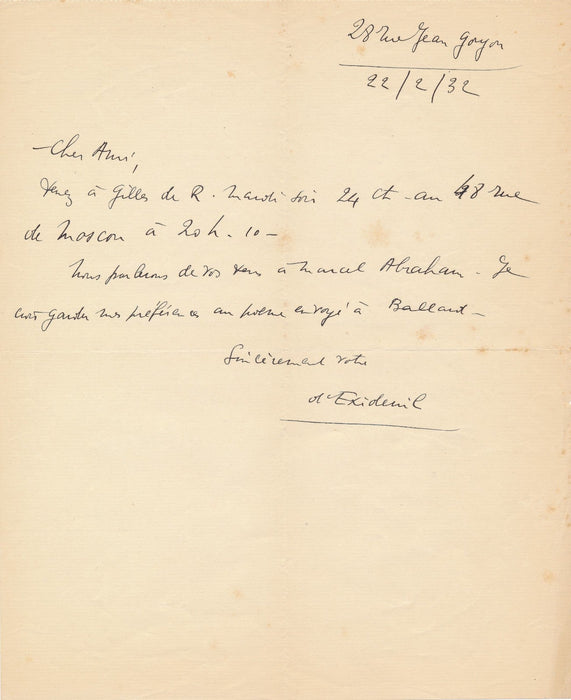 28 rue Jean Goujon
22/2/32
Cher Ami,
Venez à Gilles de R. mardi soir 24 ct - au 48 rue
de Moscou à 20h. 10 -
Nous parlerons de vos vers à Marcel Abraham. Je
crois garder mes préférences au poème envoyé à Ballard -
Sincèrement votre
d'Exideuil